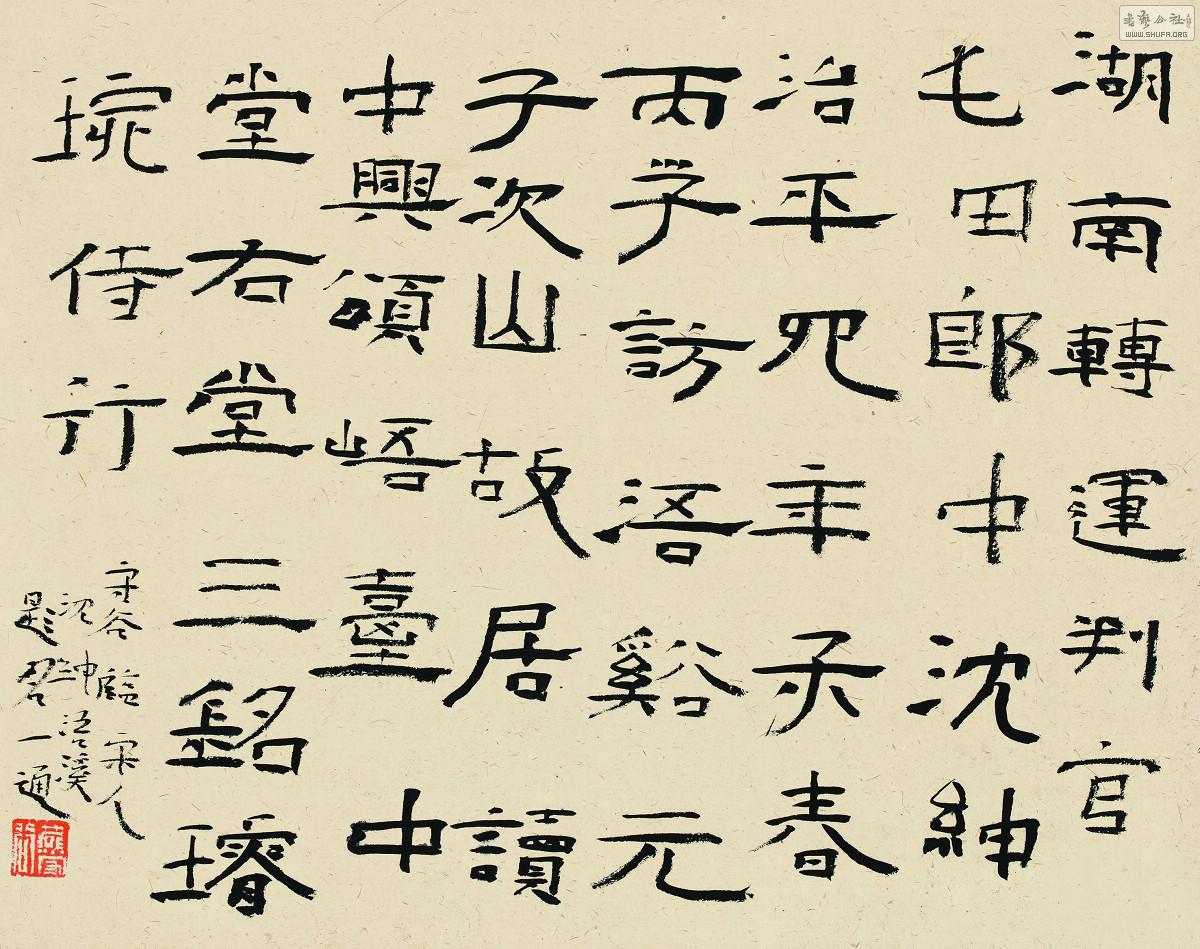 湖南轉運判官
屯田郎中沈紳
治平四年季春
丙子訪浯谿元
子次山故居讀
中興頌峿臺中
堂右堂三銘璿
琬侍行
守谷臨宋人
沈紳浯溪
題名一通
书艺公社
WWW.SHUFA.ORG